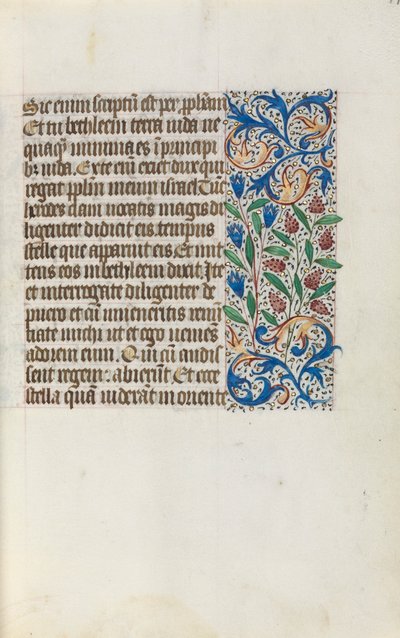 Sic enim scriptū est per ꝓphetam
Et tu bethleem terra iuda ne
quaqȝ minima es ī principi
bȝ iuda. Ex te enī exiet dux qui
regat pplm meum israel Tūc
herodes clam vocatis magis di
ligenter didicit eis tempus
stelle que apparuit eis Et mit
tens eos in bethleem dixit. Ite
et interrogate diligenter de
puero et cū inueneritis renū
tiate michi ut et ego veniēs
adorem eum. Qui cū audis
sent regem: abierūt. Et ecce
stella quā viderāt in oriente